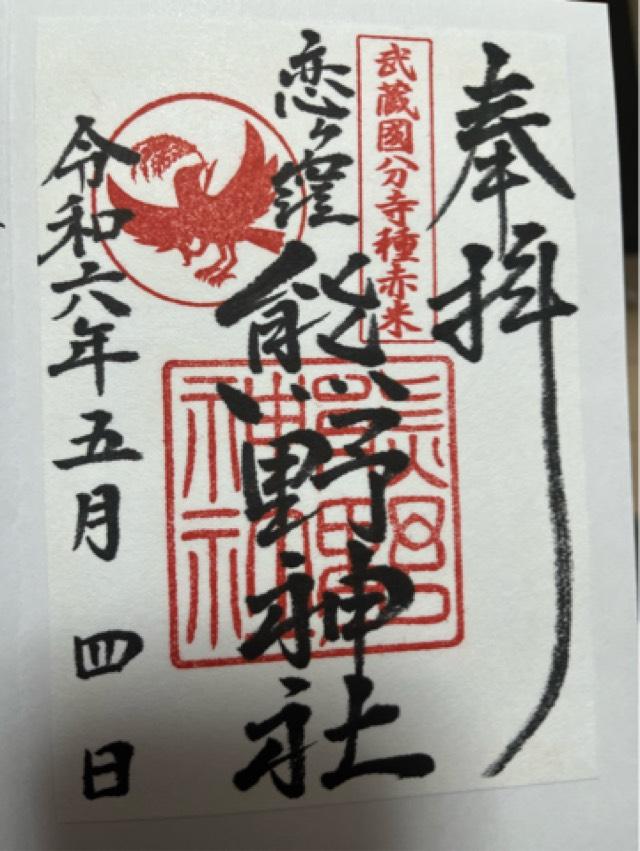 奉拝
武蔵國分寺種赤米
恋ヶ窪
熊野神社
令和六年五月四日